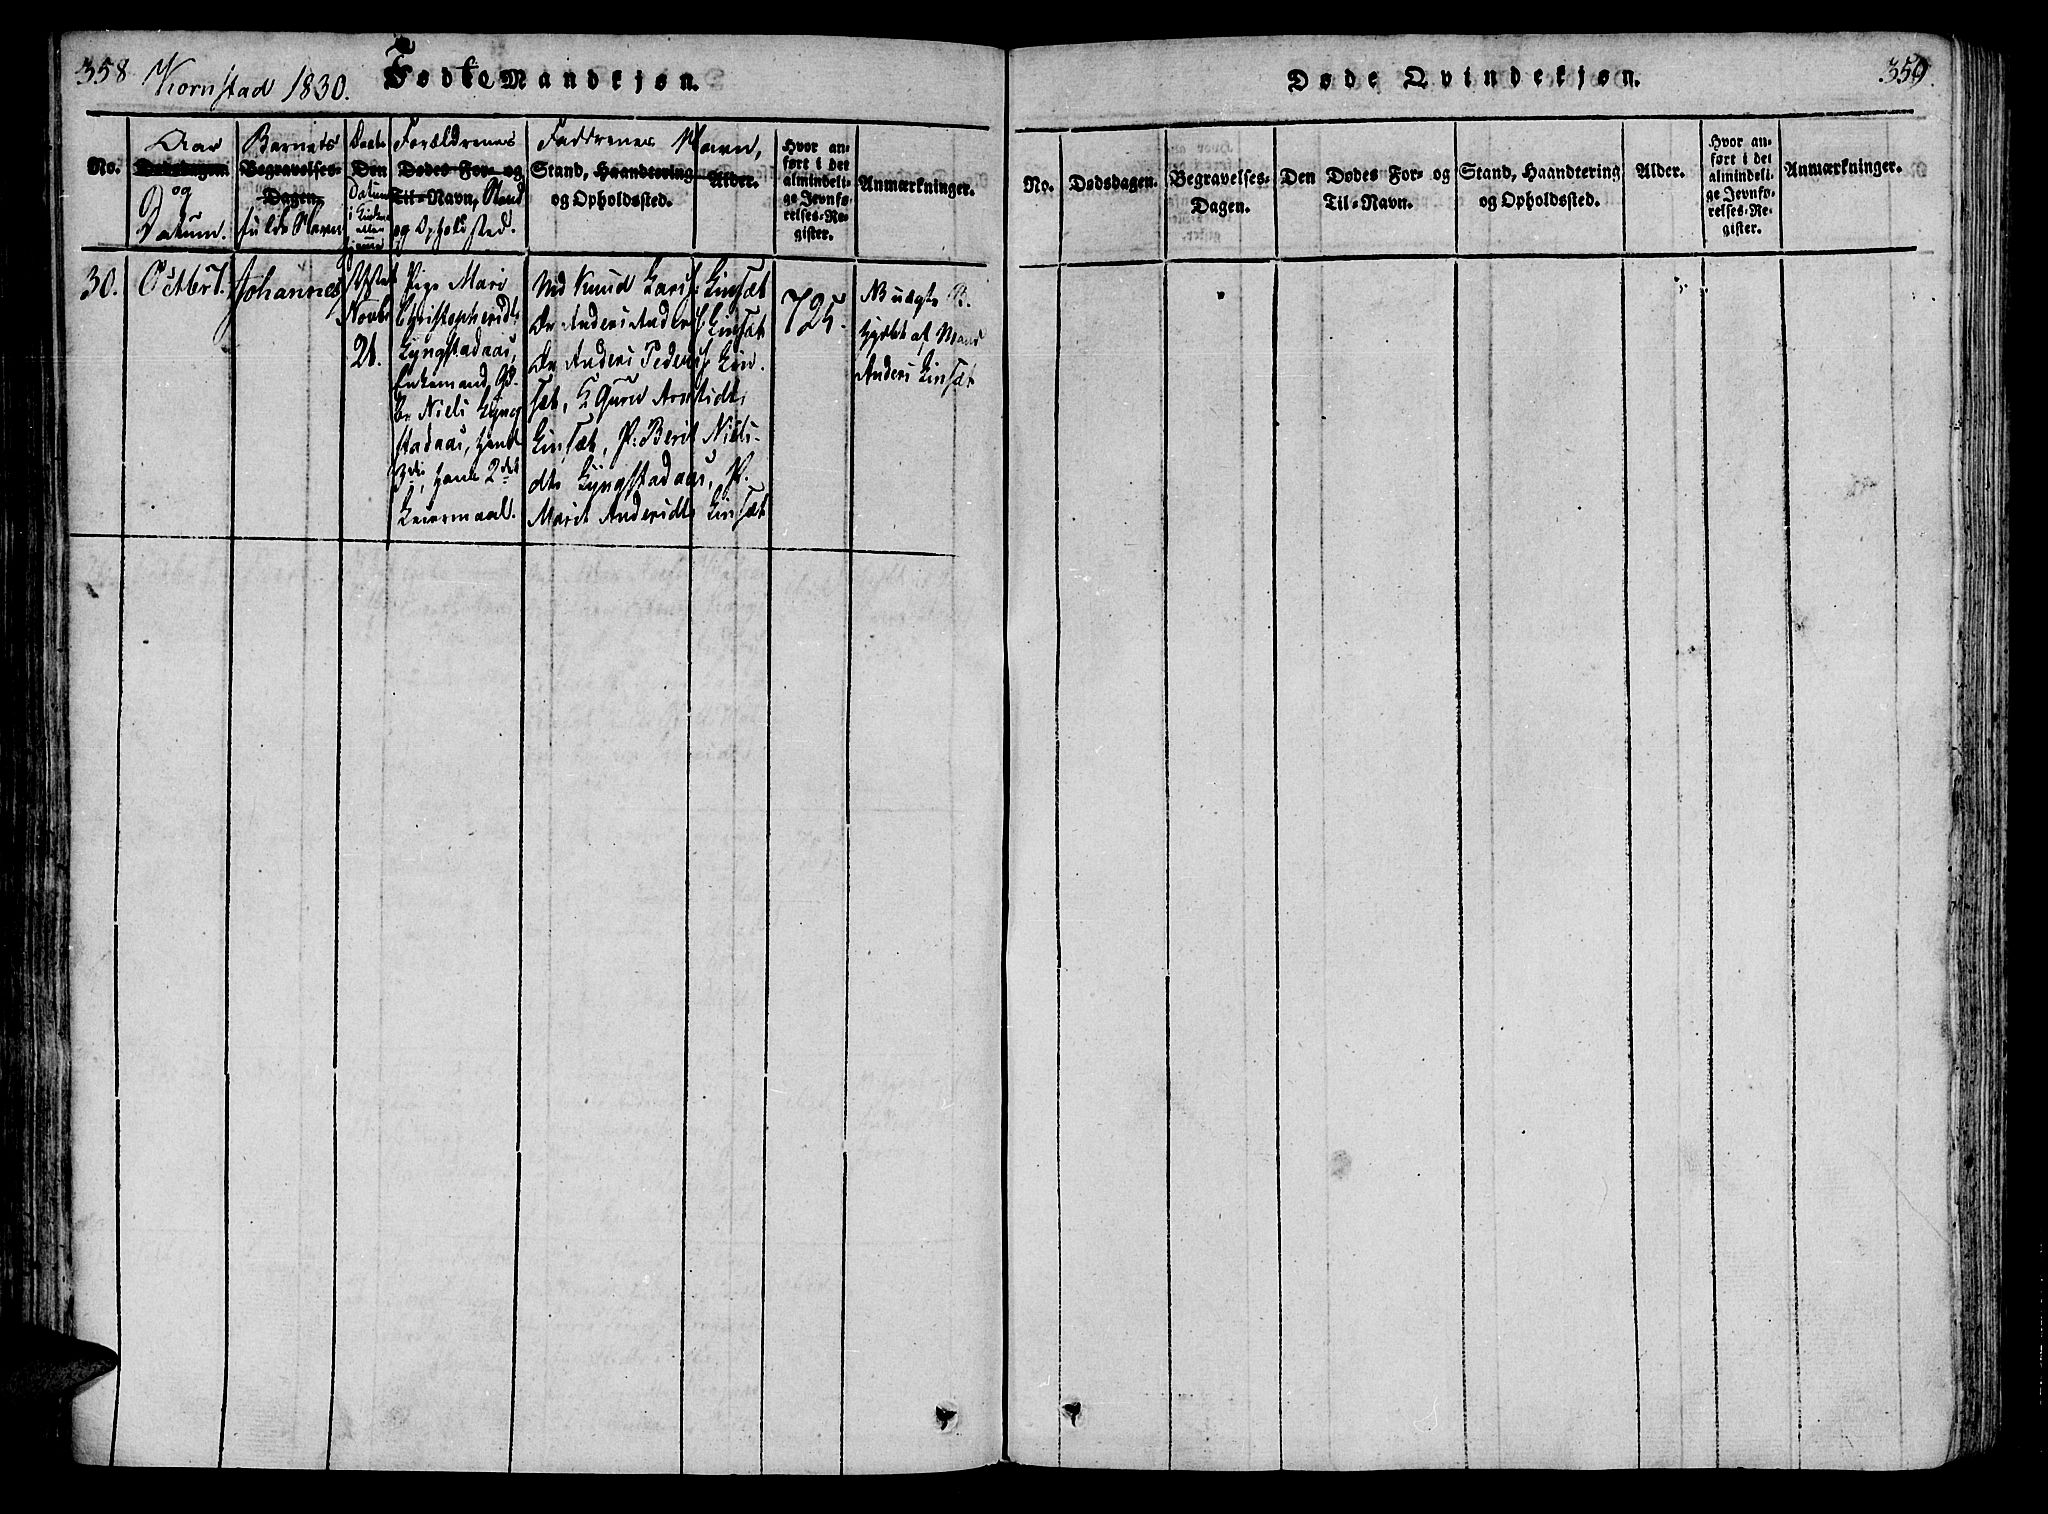 358 Kornstad 1830. Fødte Mandkjøn.
No.
Aar
Dødsdagen
og
Datum.
Barnets
Begravelses-
Dagen,
fulde Navn
Den
Datum
i Kirken
eller
hjemme
Forældrenes
Dødes For- og
Til-Navn, Stand
og Opholdsted.
Faddrenes Navn,
Stand, Haandtering
og Opholdssted.
Alder.
Hvor an-
ført i det
almindeli-
ge Jevnfø-
relses-Re-
gister.
Anmærkninger.
30.
Octbr 7.
Johannes
Novbr
21.
Pige Mari
Christophersdtr
Lyngstadaas,
Enkemand, Gd-
br Niels Lyng
stadaas, hend
3die, hans 2det
Leiermaal.
Md Knud Lars: Linsæt
Dr Anders Anders: Linsæt
Dr Anders Peders: Lin-
sæt, K Guru Arntsdtr
Linsæt, P. Berit Niels-
dtr Lyngstadaas, P.
Marit Andersdtr Linsæt
725.
NB uægte B.
hjebt af Mads
Anders Linsæt
Døde Qvindekjøn.
359.
No.
Dødsdagen.
Begravelses-
Dagen.
Den Dødes For- og
Til-Navn.
Stand, Haandtering
og Opholdssted.
Alder.
Hvor an-
ført i det
almindeli-
ge Jevnfø-
relses-Re-
gister.
Anmærkninger.